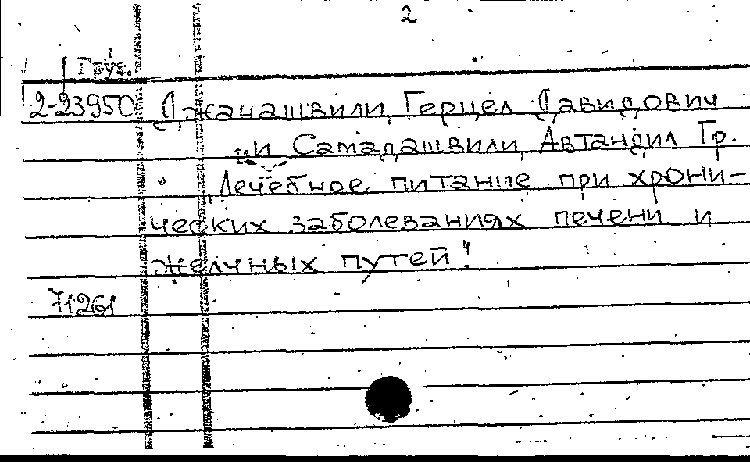 2
Груз.
2-23950 Джанашвили, Герцел Давидович
и Самадашвили, Автандил Гр.
"Лечебное питание при хрони-
ческих заболеваниях печени и
желчных путей"
71261